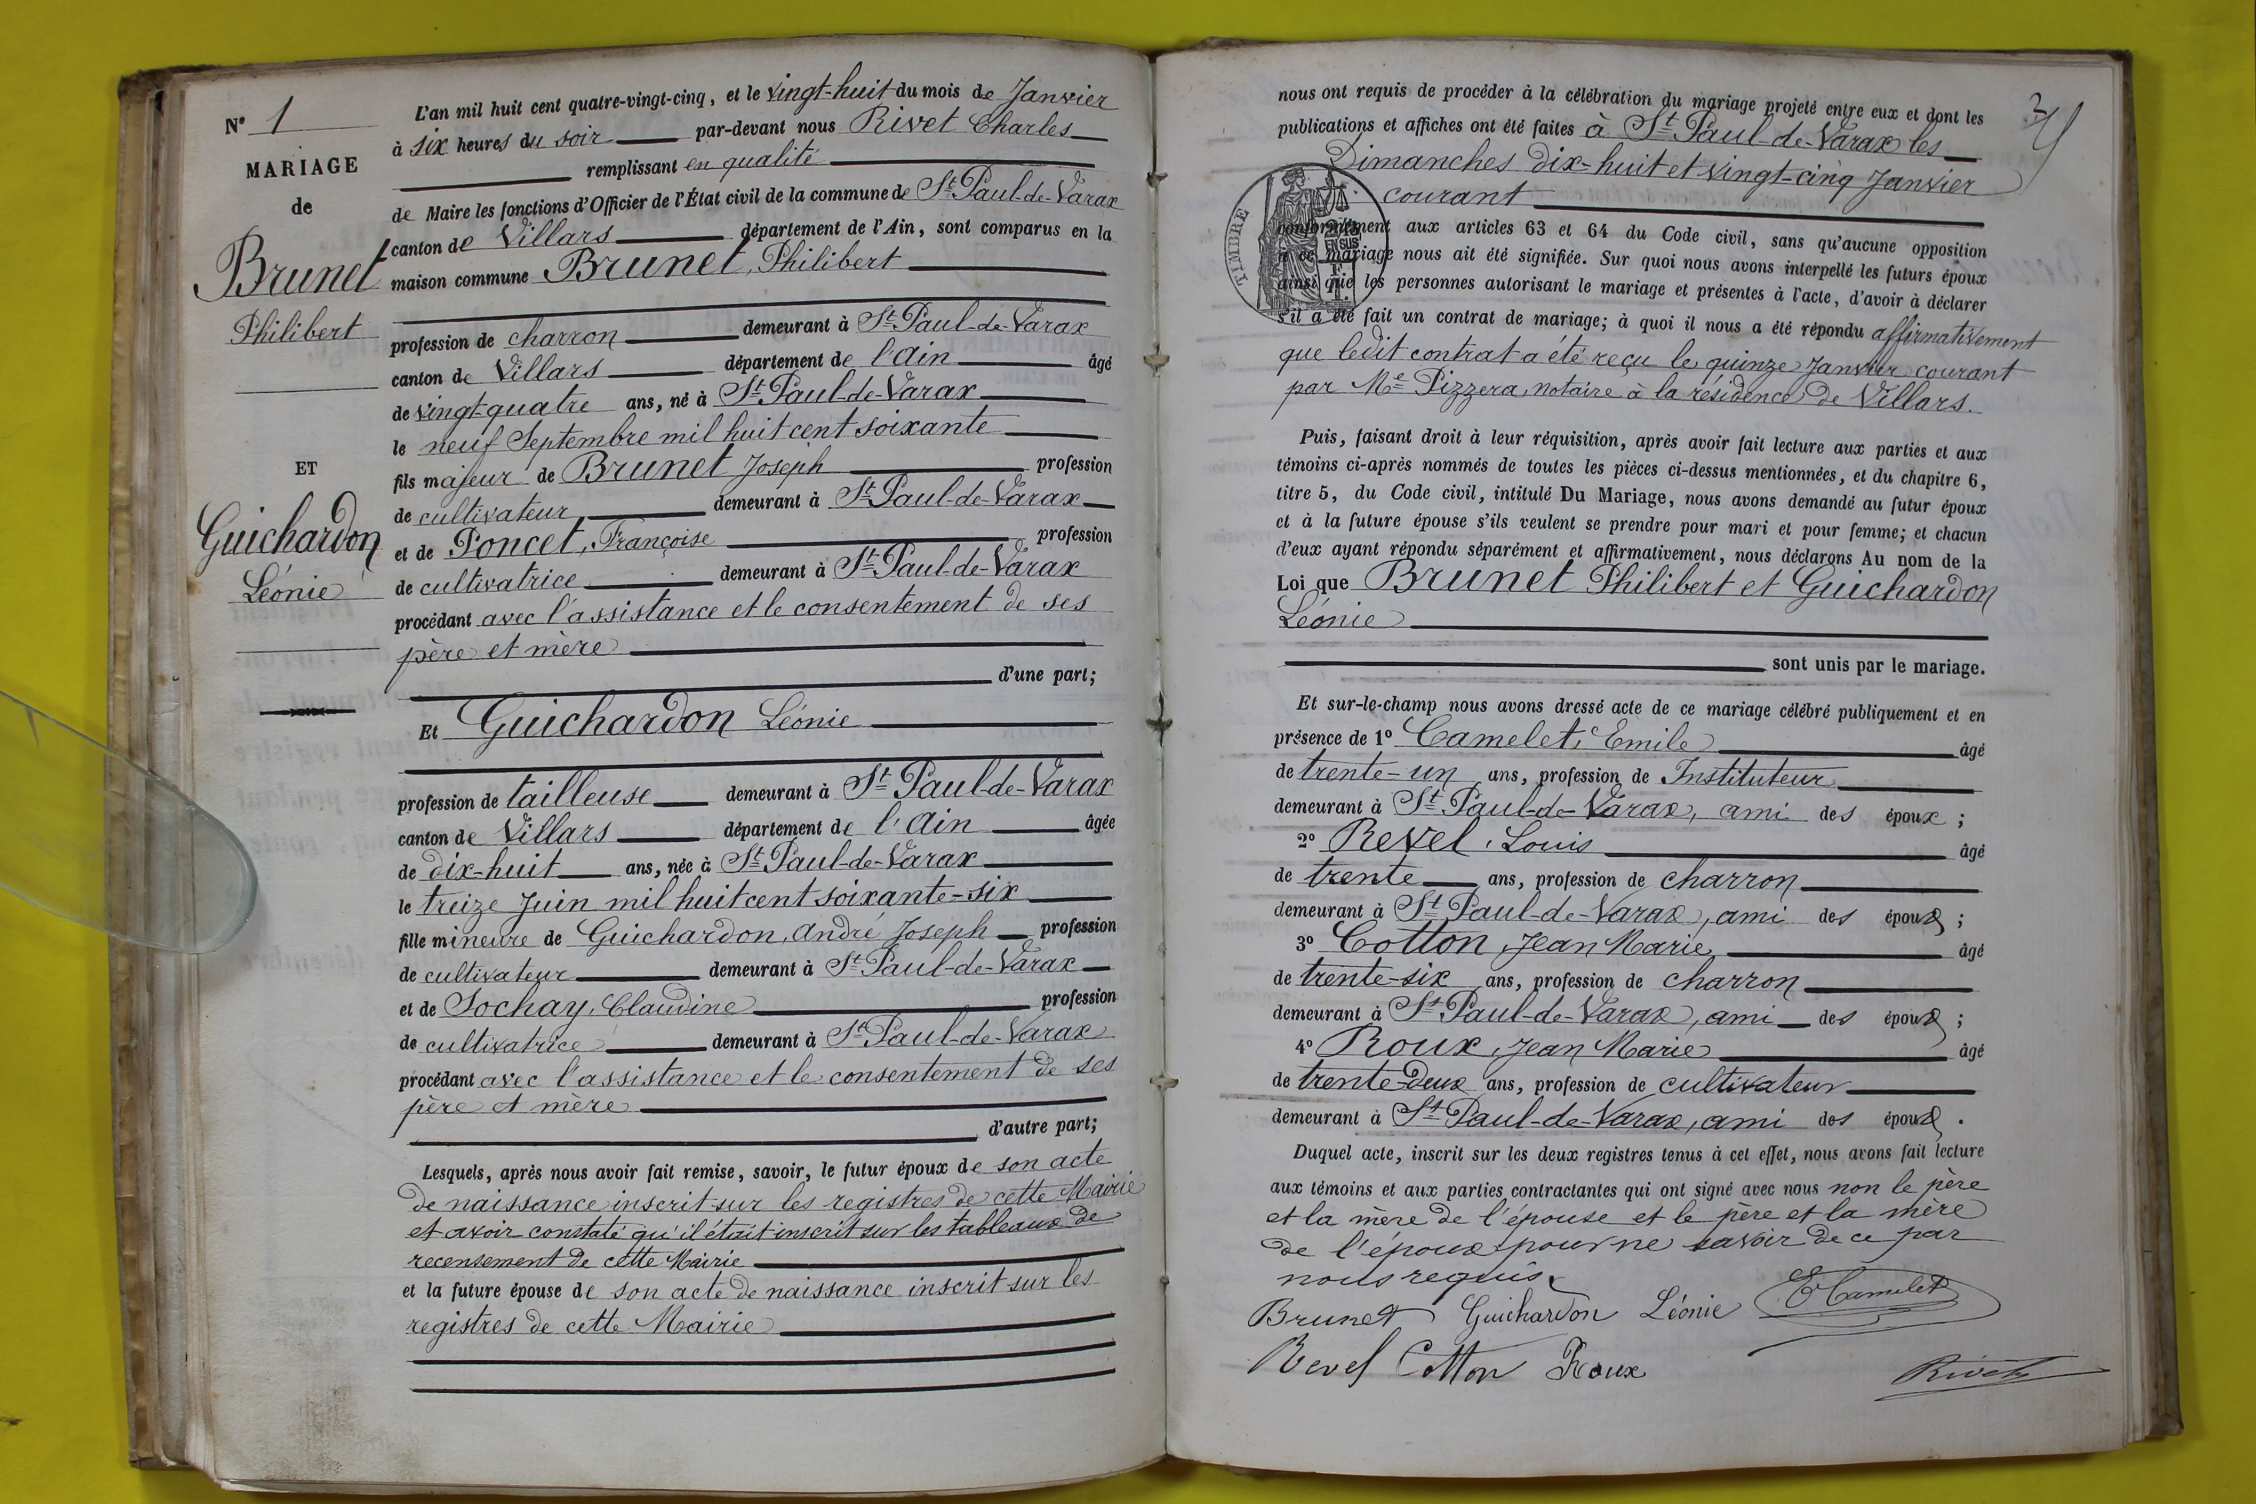 N° 1
MARIAGE
de
Brunet
Philibert
ET
Guichardon
Léonie
L'an mil huit cent quatre-vingt-cinq, et le vingt-huit du mois de Janvier
à six heures du soir par-devant nous Rivet Charles
remplissant en qualité
de Maire les fonctions d'Officier de l'État civil de la commune de St Paul-de-Varax
canton de Villars département de l'Ain, sont comparus en la
maison commune Brunet, Philibert
profession de charron demeurant à St Paul-de-Varax
canton de Villars département de l'Ain âgé
de vingt-quatre ans, né à St Paul-de-Varax
le neuf Septembre mil huit cent soixante
fils majeur de Brunet Joseph profession
de cultivateur demeurant à St Paul-de-Varax
et de Poncet, Françoise profession
de cultivatrice demeurant à St Paul-de-Varax
procédant avec l'assistance et le consentement de ses
père et mère
d'une part;
Et Guichardon Léonie
profession de tailleuse demeurant à St Paul-de-Varax
canton de Villars département de l'Ain âgée
de dix-huit ans, née à St Paul-de-Varax
le treize Juin mil huit cent soixante-six
fille mineure de Guichardon, André Joseph profession
de cultivateur demeurant à St Paul-de-Varax
et de Sochay, Claudine profession
de cultivatrice demeurant à St Paul-de-Varax
procédant avec l'assistance et le consentement de ses
père et mère
d'autre part;
Lesquels, après nous avoir fait remise, savoir, le futur époux de son acte
de naissance inscrit sur les registres de cette Mairie
et avoir constaté qu'il était inscrit sur les tableaux de
recensement de cette Mairie
et la future épouse de son acte de naissance inscrit sur les
registres de cette Mairie
3
nous ont requis de procéder à la célébration du mariage projeté entre eux et dont les
publications et affiches ont été faites à St Paul-de-Varax les
Dimanches dix-huit et vingt-cinq Janvier
courant
TIMBRE
conformément aux articles 63 et 64 du Code civil, sans qu'aucune opposition
à ce mariage nous ait été signifiée. Sur quoi nous avons interpellé les futurs époux
ainsi que les personnes autorisant le mariage et présentes à l'acte, d'avoir à déclarer
s'il a été fait un contrat de mariage; à quoi il nous a été répondu affirmativement
que ledit contrat a été reçu le quinze Janvier courant
par Me Pizzera, notaire à la résidence de Villars.
Puis, faisant droit à leur réquisition, après avoir fait lecture aux parties et aux
témoins ci-après nommés de toutes les pièces ci-dessus mentionnées, et du chapitre 6,
titre 5, du Code civil, intitulé Du Mariage, nous avons demandé au futur époux
et à la future épouse s'ils veulent se prendre pour mari et pour femme; et chacun
d'eux ayant répondu séparément et affirmativement, nous déclarons Au nom de la
Loi que Brunet Philibert et Guichardon
Léonie
sont unis par le mariage.
Et sur-le-champ nous avons dressé acte de ce mariage célébré publiquement et en
présence de 1° Camelet, Emile âgé
de trente-un ans, profession de Instituteur
demeurant à St Paul-de-Varax, ami des époux ;
2° Revel, Louis âgé
de trente ans, profession de charron
demeurant à St Paul-de-Varax, ami des époux ;
3° Cotton, Jean Marie âgé
de trente-six ans, profession de charron
demeurant à St Paul-de-Varax, ami des époux ;
4° Roux, Jean Marie âgé
de trente-deux ans, profession de cultivateur
demeurant à St Paul-de-Varax, ami des époux .
Duquel acte, inscrit sur les deux registres tenus à cet effet, nous avons fait lecture
aux témoins et aux parties contractantes qui ont signé avec nous non le père
et la mère de l'épouse et le père et la mère
de l'époux pour ne savoir de ce par
nous requis.
Brunet Guichardon Léonie E Camelet
Revel Cotton Roux
Rivet